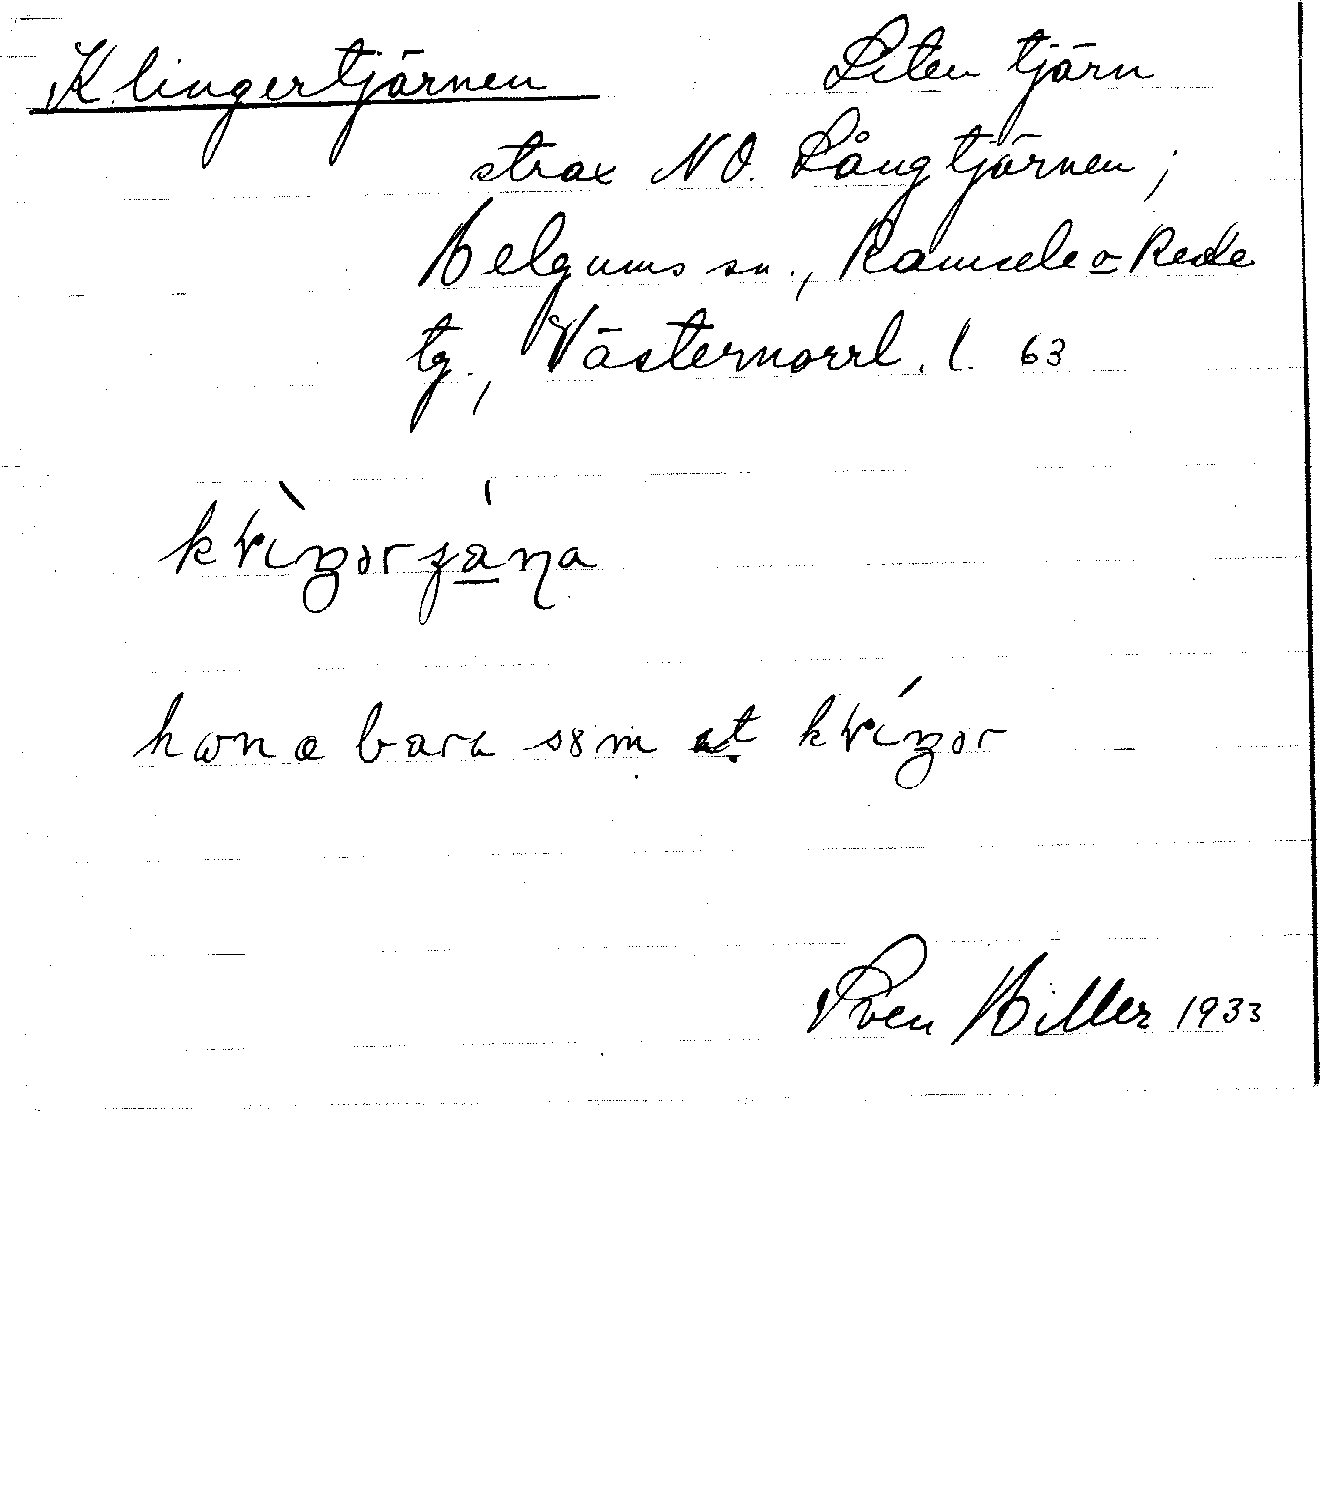 Klingertjärnen Liten tjärn
strax NO. Långtjärnen;
Helgums sn., Ramsele o Rede
tg., Västernorrl. l. 63
hon æ bara som et
Sven Hiller 1933